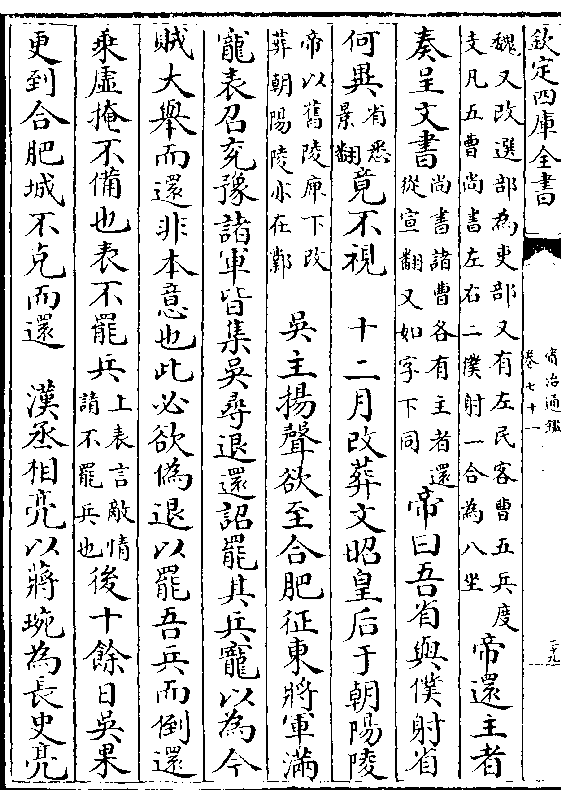 欽定四庫全書
資治通鑑
卷七十一
二十九
魏又改選部為吏部又有左民客曹五兵度
支凡五曹尚書左右二僕射一令為八坐
帝還主者
奏呈文書
尚書諸曹各有主者還
從宣翻又如字下同
帝曰吾省與僕射省
何異
省悉
景翻
竟不視　十二月改葬文昭皇后于朝陽陵
帝以舊陵庳下改
葬朝陽陵亦在鄴
吳主揚聲欲至合肥征東將軍滿
寵表召兖豫諸軍皆集吳尋退還詔罷其兵寵以為今
賊大舉而還非本意也此必欲偽退以罷吾兵而倒還
乘虛掩不備也表不罷兵
上表言敵情
請不罷兵也
後十餘日吳果
更到合肥城不克而還　漢丞相亮以蔣琬為長史亮